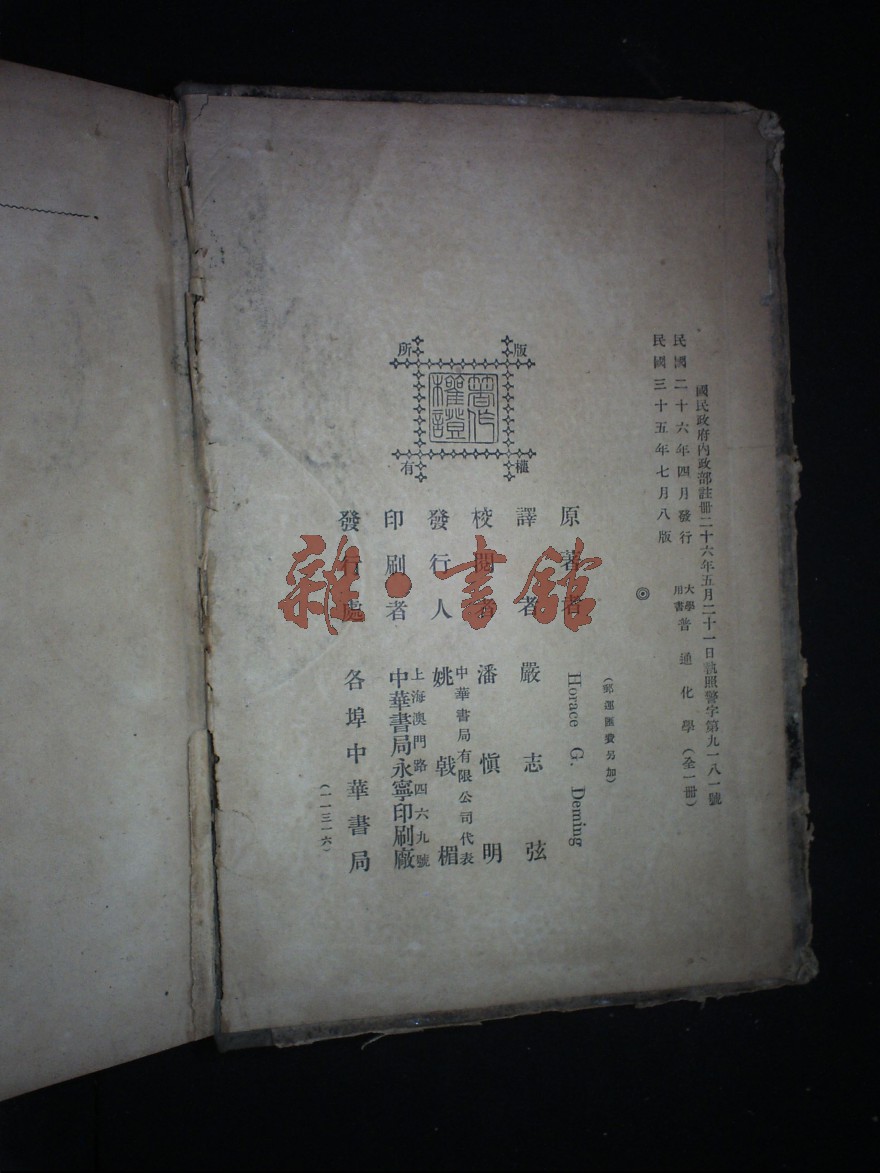 國民政府內政部註冊二十六年五月二十一日執照警字第九一八一號
民國二十六年四月發行
民國三十五年七月八版
大學用書 普通化學（全一冊）
◎
（郵運匯費另加）
原著者 Horace G. Deming
譯者 嚴志弦
校閱者 潘愼明
發行人 中華書局有限公司代表 姚戟楣
印刷者 上海澳門路四六九號 中華書局永寧印刷廠
發行處 各埠中華書局
（一一三一六）
版權所有
著作權證
雜·書館